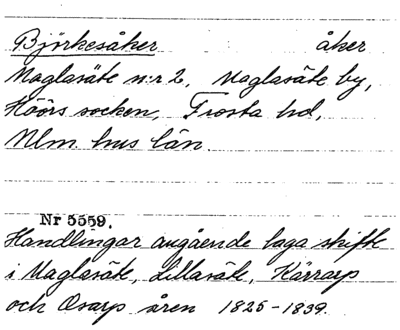 Björkesåker åker
Maglasäte n:r 2, Maglasäte by,
Höörs socken, Frosta hd,
Mlm. hus län
Nr 5559.
Handlingar angående laga skifte
i Maglasäte, Lillasäte, Kärrarp
och Osarp åren 1825-1839.